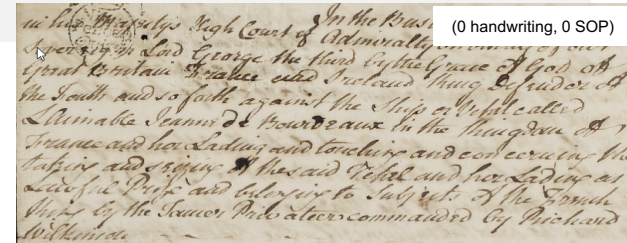 (0 handwriting, 0 SOP)
In the Bus
in his Majestys High Court of Admiralty on behalf of our
Sovereign Lord George the third by the Grace of God of
Great Britain France and Ireland King Defender of
the Faith and so forth against the Ship or Vessel called
L'Aimable Jeannede Bourdeaux in the Kingdom of
France and her Lading and touching and concerning the
taking and seizing of the said Vessel and her Lading as
Lawful Prize and belonging to Subjects of the French
King by the James Privateer commanded by Richard
Wilkinson